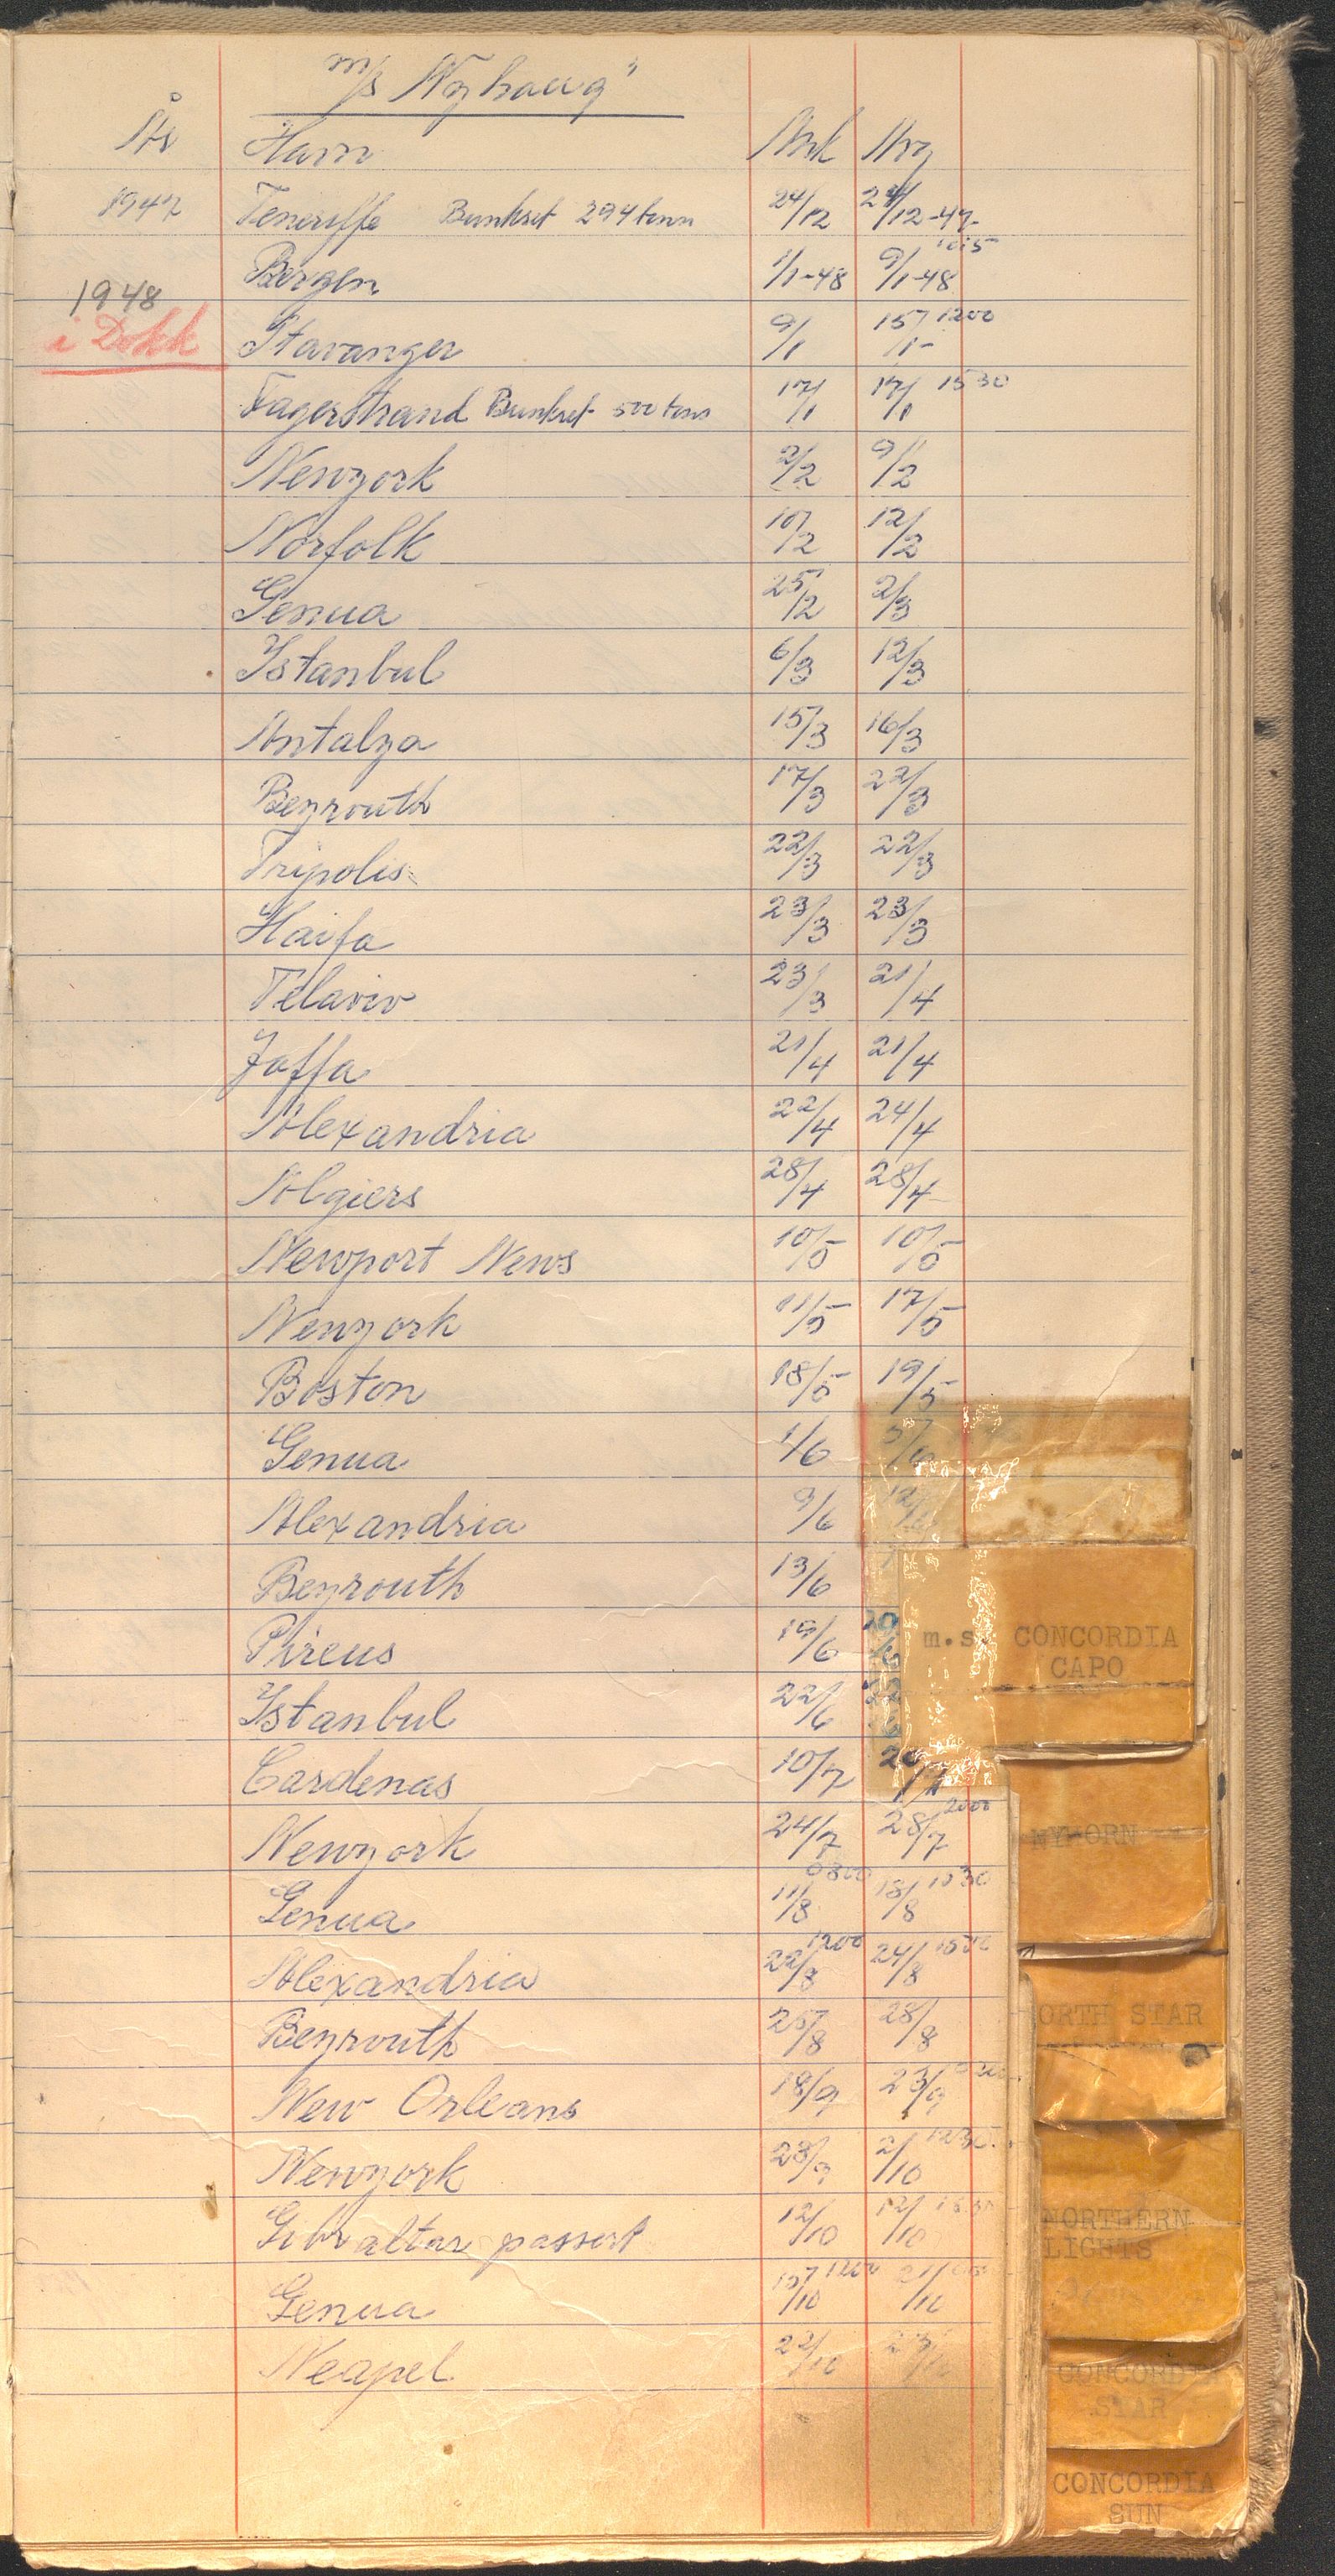 m/s "Nyhaug"
År Havn Ank Avg
1947 Teneriffe Bunkret 294 tonn 24/12 24/12-47-
1948 Bergen 1/1-48 9/1-48 1015
i Dokk Stavanger 9/1 15/1- 1200
Fagerstrand Bunkret 500 tons 17/1 17/1 1530
Newyork 2/2 9/2
Norfolk 10/2 12/2
Genua 25/2 2/3
Istanbul 6/3 12/3
Antalya 15/3 16/3
Beyrouth 17/3 22/3
Tripolis 22/3 22/3
Haifa 23/3 23/3
Telaviv 23/3 21/4
Jaffa 21/4 21/4
Alexandria 22/4 24/4
Algiers 28/4 28/4
Newport News 10/5 10/5
Newyork 11/5 17/5
Boston 18/5 19/5
Genua 1/6
Alexandria 9/6 12/
Beyrouth 13/6
Pireus 19/6
Istanbul 22/6
Cardenas 10/7
Newyork 24/7 28/7 2000
Genua 11/8 0800 18/8 1030
Alexandria 22/8 1200 24/8
Beyrouth 25/8 28/8
New Orleans 18/9 23/9
Newyork 28/9 2/10 1230
Gibraltar passert 12/10 12/10
Genua 15/10 1200 21/10
Neapel 22/10 23/10
m.s. CONCORDIA
CAPO
NYHORN
ORTH STAR
NORTHERN
LIGHTS
CONCORDIA
STAR
CONCORDIA
SUN